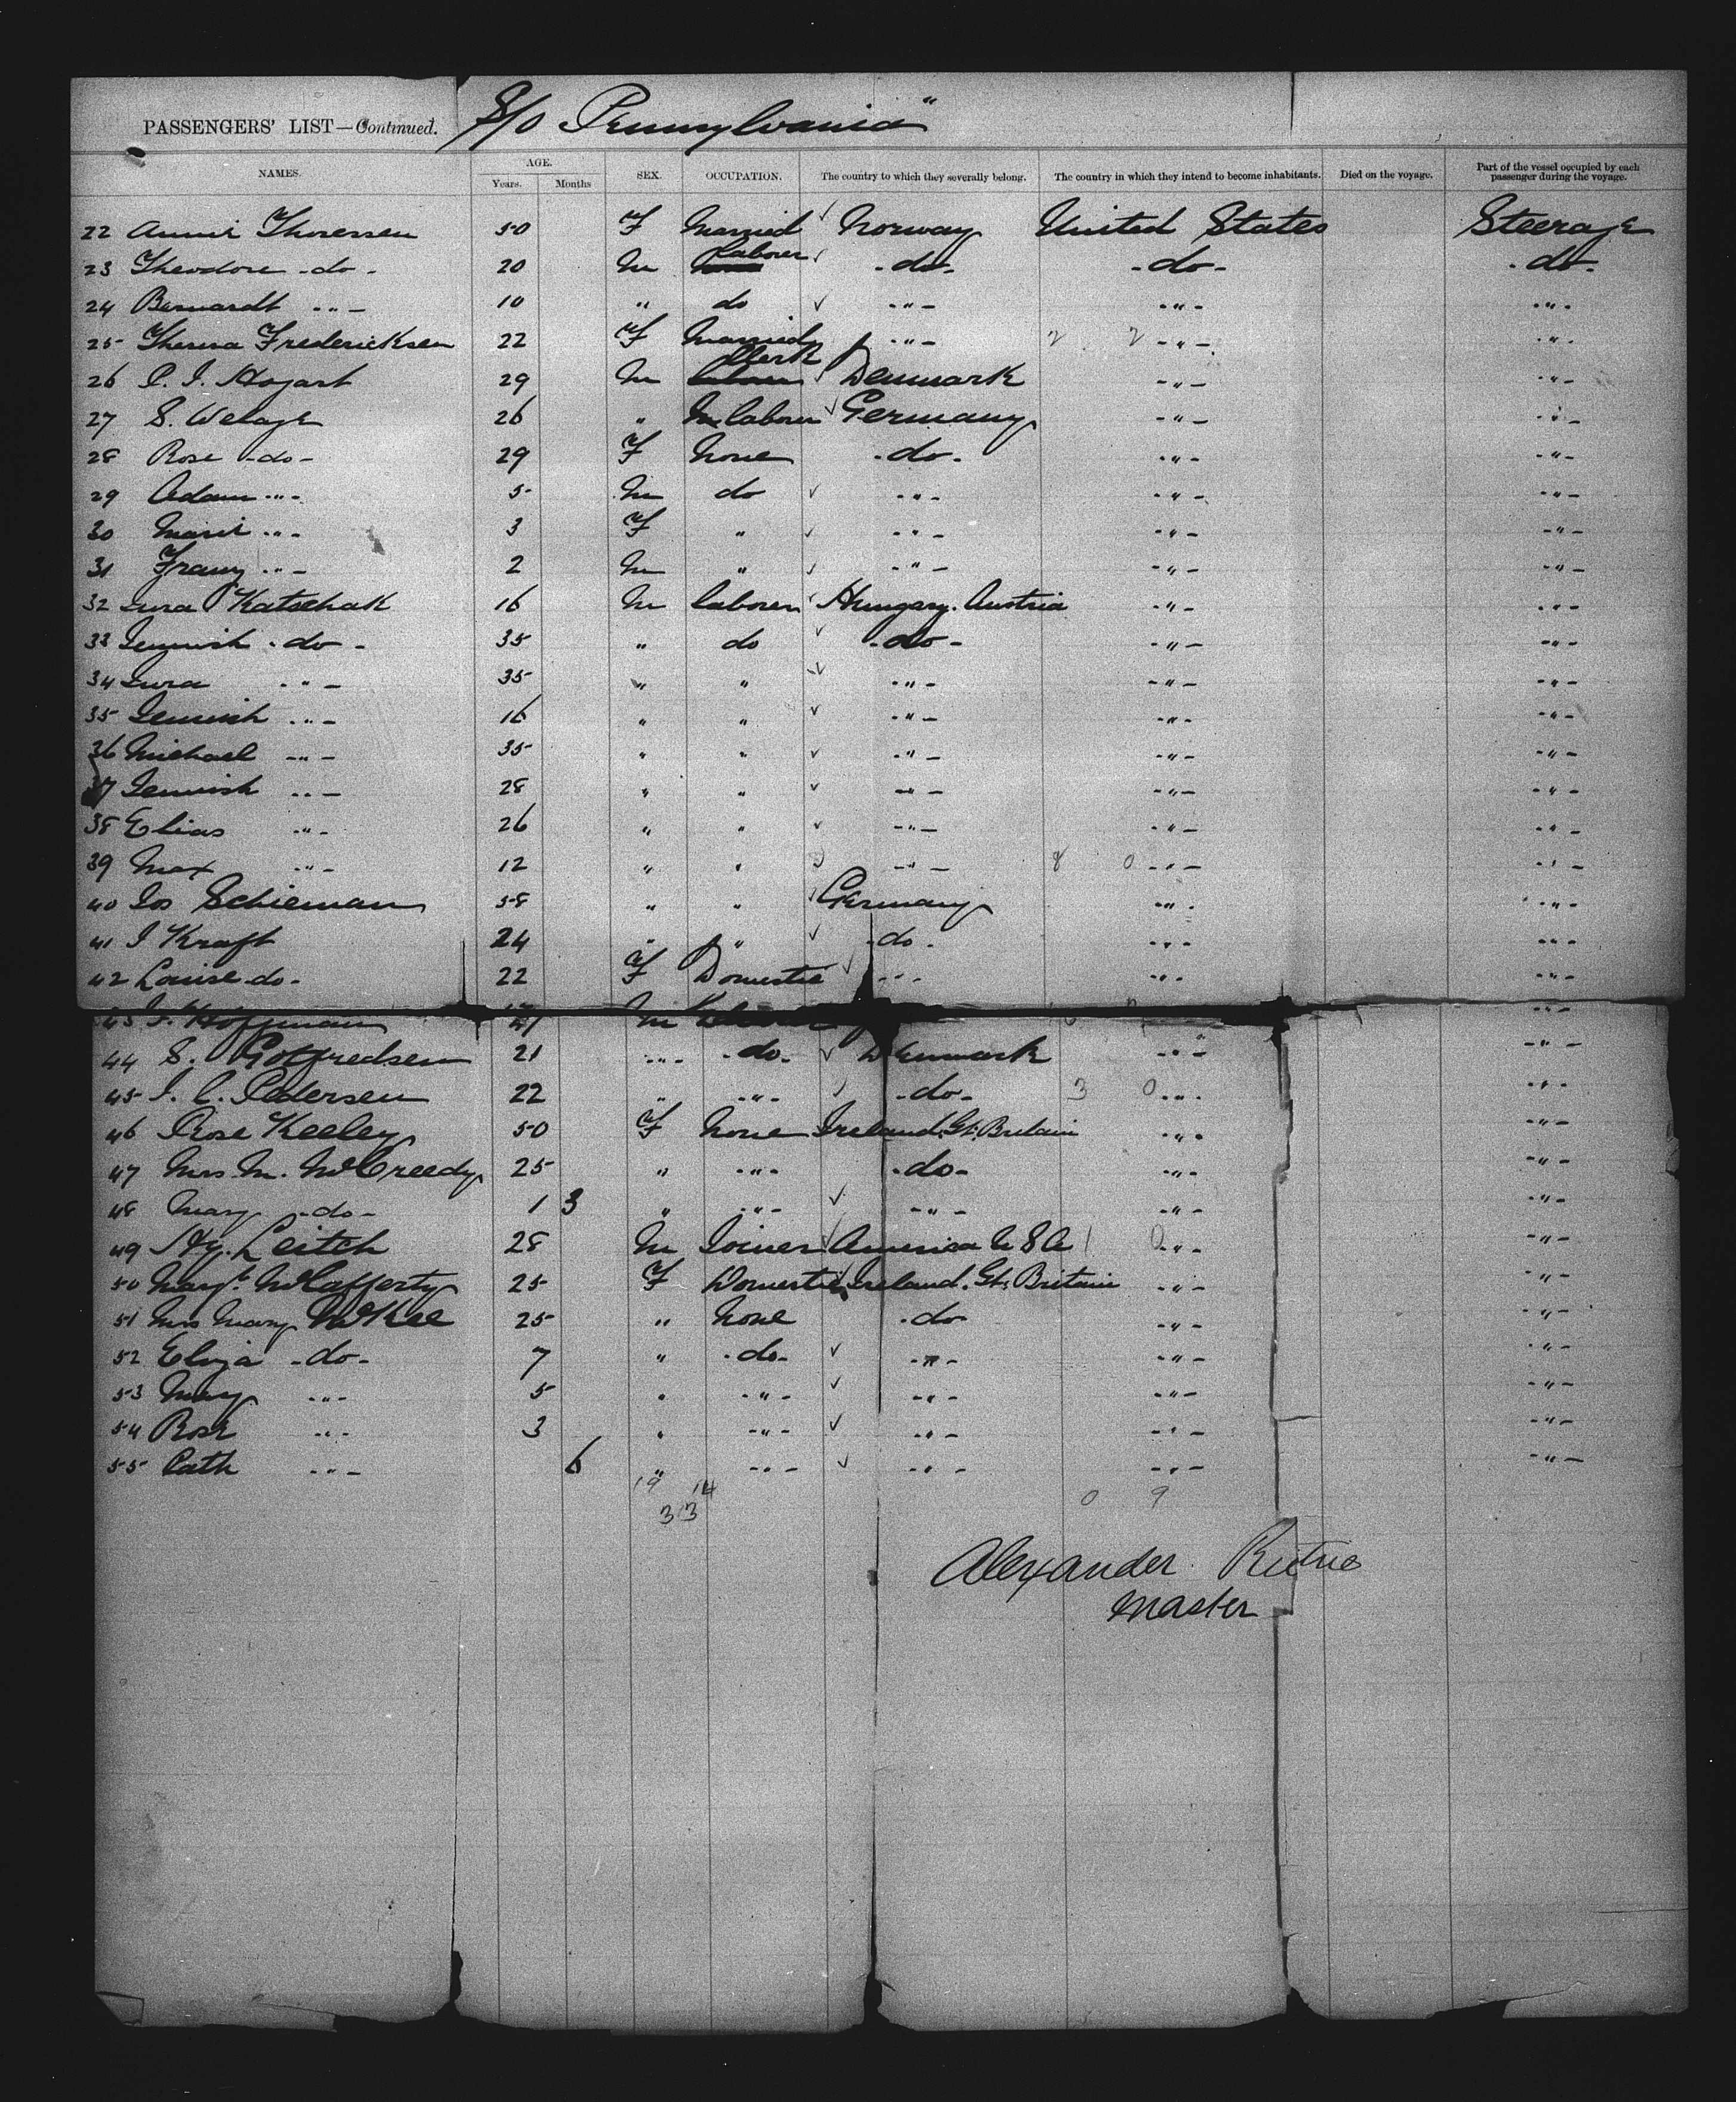 PASSENGERS' LIST—Continued. S/O Pennsylvania"
NAMES. AGE. Years. Months SEX. OCCUPATION. The country to which they severally belong. The country in which they intend to become inhabitants. Died on the voyage. Part of the vessel occupied by each passenger during the voyage.
22 Annie Thoressen 50 F Married ✓ Norway United States Steerage
23 Theodore -do- 20 M Labourer ✓ -do- -do- -do-
24 Bernardt -"- 10 " do ✓ -"- -"- -"-
25 Theresa Fredericksen 22 F Married -"- 2 2 -"- -"-
26 P. J. Hogart 29 M Clerk ✓ Denmark -"- -"-
27 S. Welage 26 " labourer ✓ Germany -"- -"-
28 Rose -do- 29 F None -do- -"- -"-
29 Adam -"- 5 M do ✓ -"- -"- -"-
30 Marie -"- 3 F " ✓ -"- -"- -"-
31 Franz -"- 2 M " ✓ -"- -"- -"-
32 Katschak 16 M labourer ✓ Hungary. Austria -"- -"-
33 -do- 35 " do ✓ -do- -"- -"-
34 -"- 35 " " ✓ -"- -"- -"-
35 -"- 16 " " ✓ -"- -"- -"-
36 Michael -"- 35 " " ✓ -"- -"- -"-
37 -"- 28 " " ✓ -"- -"- -"-
38 Elias -"- 26 " " ✓ -"- -"- -"-
39 Max -"- 12 " " -"- 8 0 -"- -"-
40 Jos Schieman 58 " " Germany -"- -"-
41 J Kraft 24 " " ✓ -do- -"- -"-
42 Louise -do- 22 F Domestic ✓ -"- -"- -"-
43 J. Hoffman M -"-
44 S. Gottfredsen 21 -"- -do- ✓ Denmark -"- -"-
45 J. C. Pedersen 22 " -"- ✓ -do- 3 0 -"- -"-
46 Rose Keeley 50 F None Ireland. Gt. Britain -"- -"-
47 Mrs. M. McCreedy 25 " -"- -do- -"- -"-
48 Mary -do- 1 3 " -"- ✓ -"- -"- -"-
49 Hy. Leitch 28 M Joiner ✓ America U S A 1 0 -"- -"-
50 Margt. McCafferty 25 F Domestic Ireland. Gt. Britain -"- -"-
51 Mrs Mary McKee 25 " None -do- -"- -"-
52 Eliza -do- 7 " -do- ✓ -"- -"- -"-
53 Mary -"- 5 " -"- ✓ -"- -"- -"-
54 Rose -"- 3 " -"- ✓ -"- -"- -"-
55 Cath -"- 6 " -"- ✓ -"- -"- -"-
19 14 0 9
33
Alexander
Master